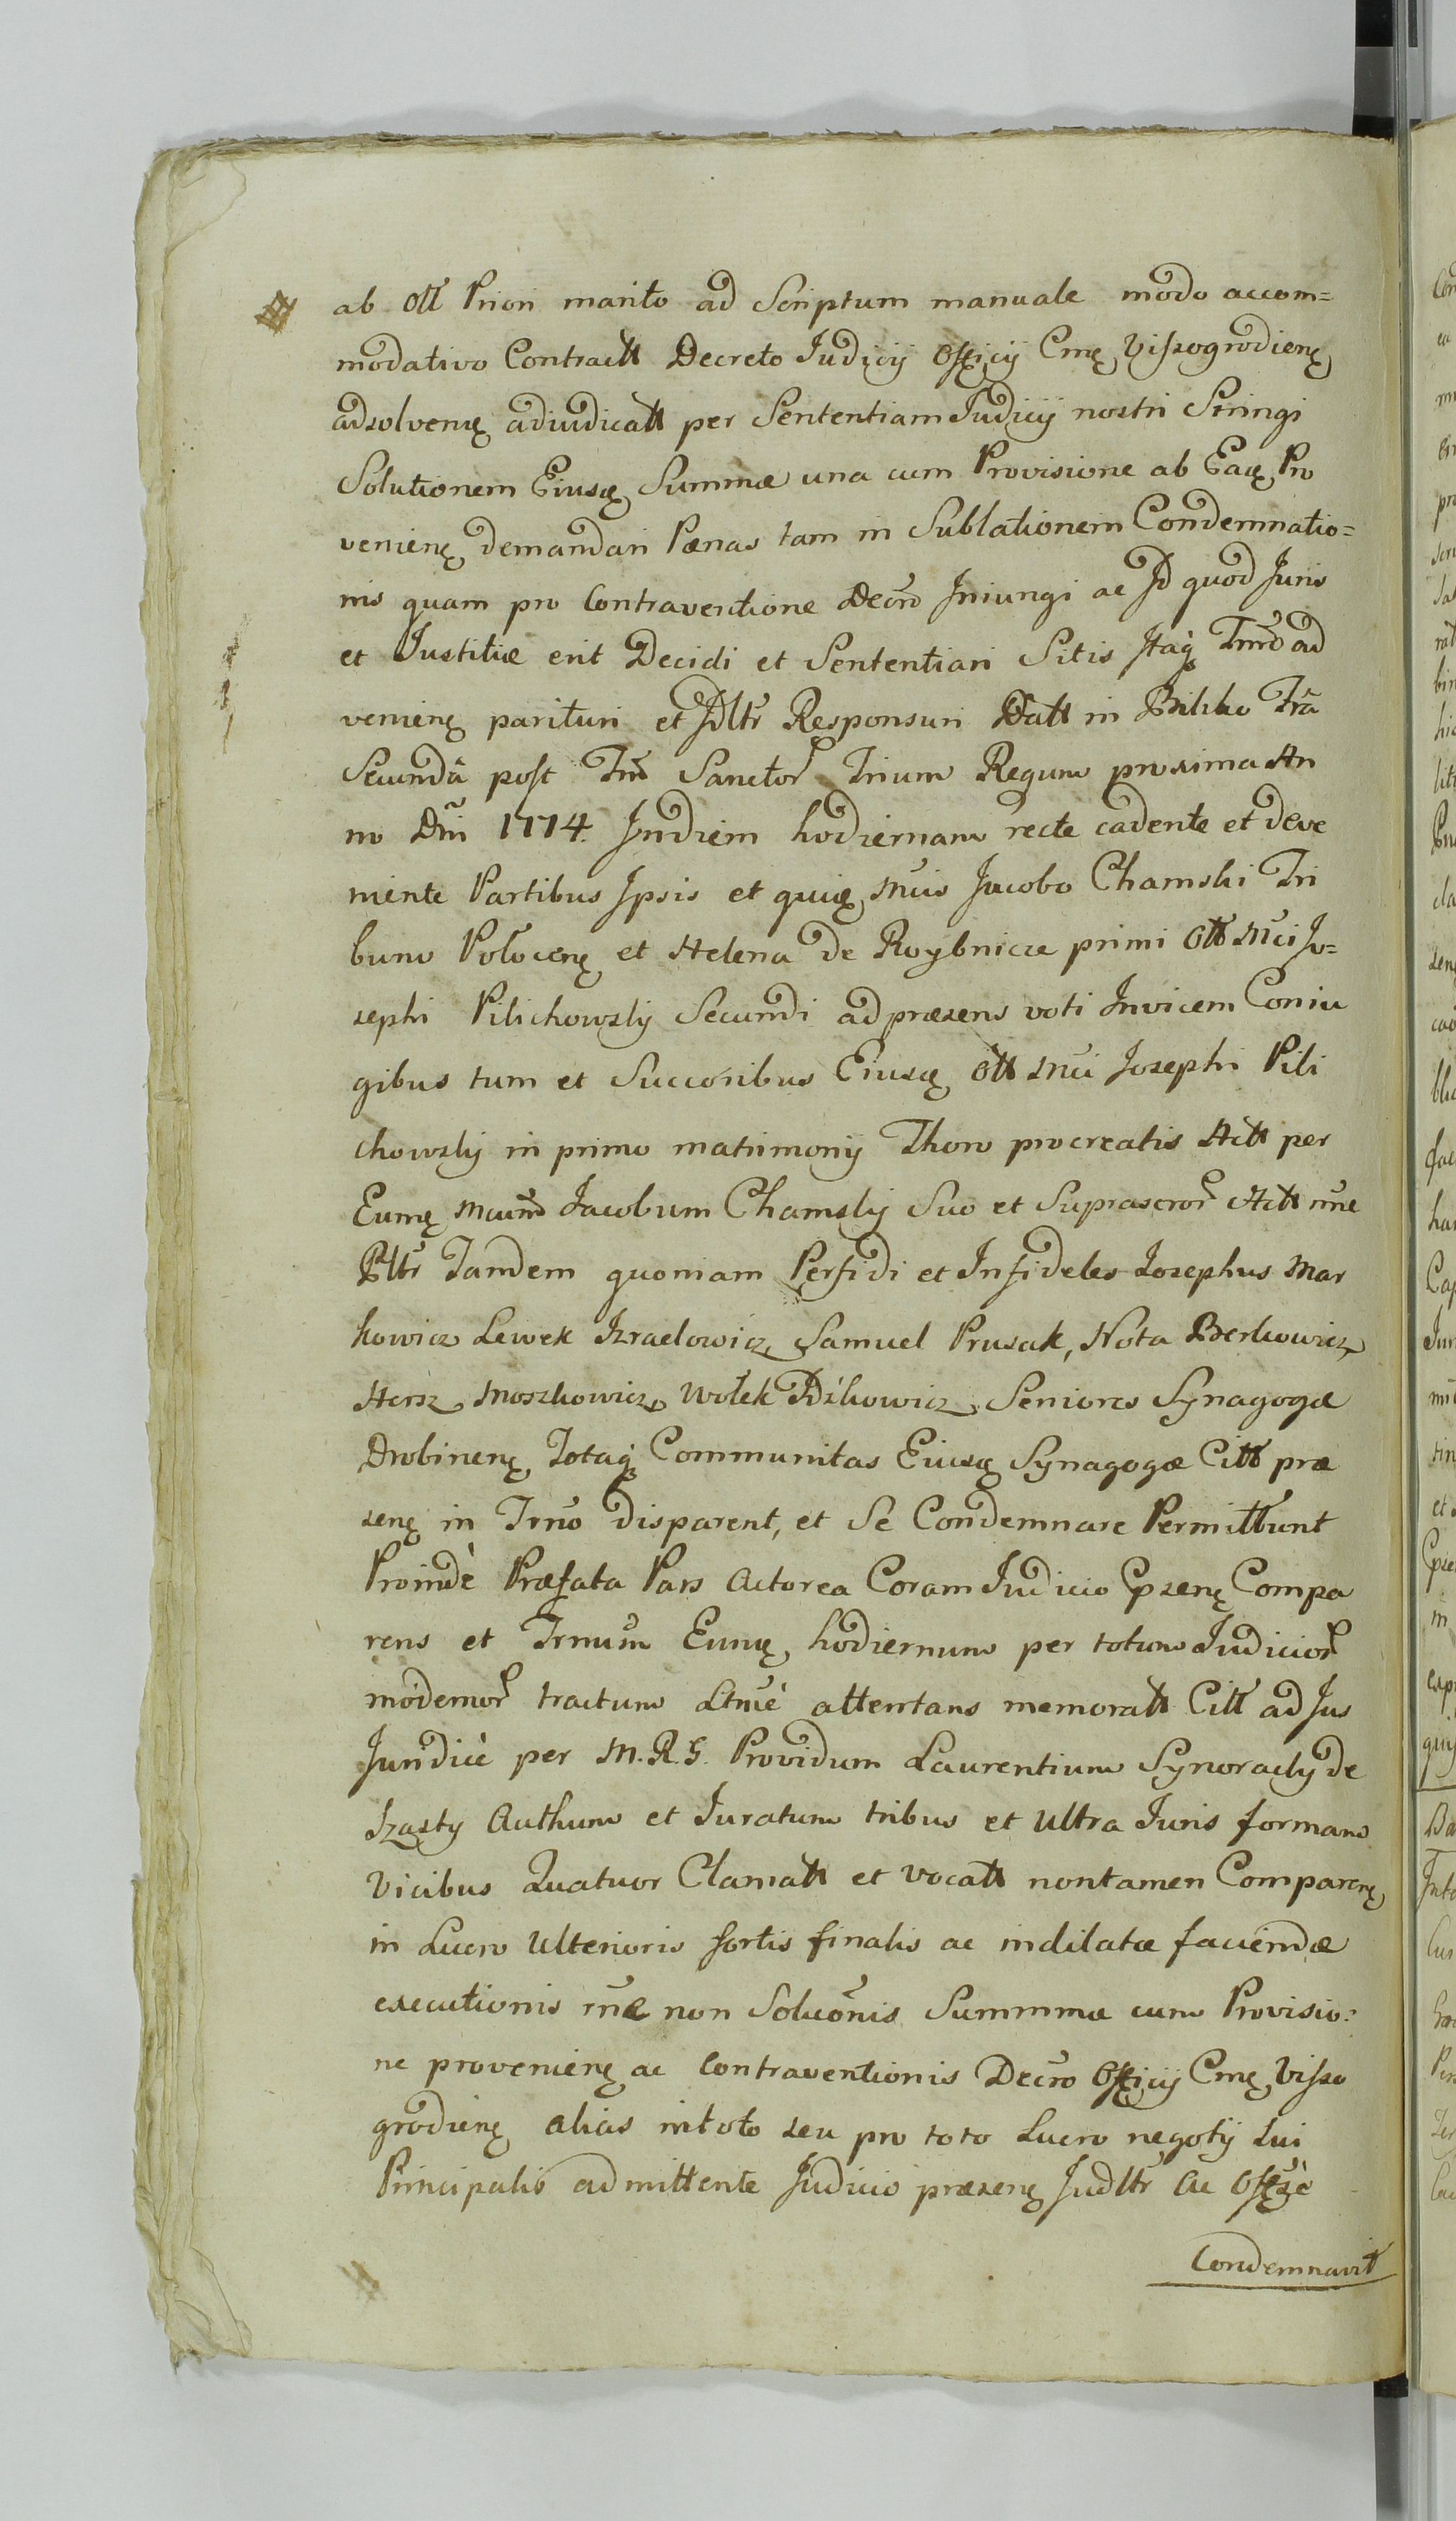 ab Ott Priori marito ad Scriptum manuale modo accom=
modativo Contractt Decreto Judicij Officij Cmę Vissogrodienę
adsolvenę adiudicatt per Sententiam Judicij nostri Stringi
Solutionem Eiusę Summæ una cum Provisione ab Eaę Pro
venienę demandari Pænas tam in Sublationem Condemnatio=
nis quam pro Contraventione Decro Iniungi ac Id quod Juris
et Justitiæ erit Decidi et Sententiari Sitis Itaq Tmo ad
venienę parituri et Jdltr Responsuri Datt in Bilsko Fra
Secunda post Fm Sanctor Trium Regum proxima An
no Dni 1774. In diem hodiernam recte cadente et deve
niente Partibus Ipsis et quię Mcis Jacobo Chamski Tri
buno Polocenę et Helena de Roybnicze primi Ott Mci Jo=
sephi Pilichowsky Secundi ad præsens voti Invicem Coniu
gibus tum et Succoribus Eiusę Ott Mci Josephi Pili
chowsky in primo matrimonij Thoro procreatis Actt per
Eumę Mcum Jacobum Chamsky Suo et Suprascror Actt nne
Pltr Tandem quoniam Perfidi et Infideles Josephus Mar
kowicz Lewek Izraelowicz, Samuel Prusak, Nota Berkowicz,
Hersz Moszkowicz, Wołek Dźkowicz, Seniores Synagogæ
Drobinenę Totaq Communitas Eiusę Synagogæ Citt præ
senę in Trno disparent, et Se Condemnare Permittunt
Proindè Præfata Pars Actorea Coram Judicio Præsenę Compa
rens et Trnum Eumę hodiernum per totum Judicior
modernor tractum Ltmè attentans memoratt Citt ad Jus
Juridicè per M.R.G. Providum Laurentium Synoracky de
Izasty Authum et Juratum tribus et Ultra Juris formam
Vicibus Quatuor Clamatt et vocatt non tamen Comparenę
in Lucro Ulterioris fortis finalis ac indilatæ faciendæ
executionis rnæ non Soluonis Summmæ cum Provisio=
ne provenienę ac Contraventionis Decro Officij Cmę Visso
grodienę alias in toto seu pro toto Lucro negotij Sui
Principalis admittente Judicio præsenę Judltr ac
Condemnavit